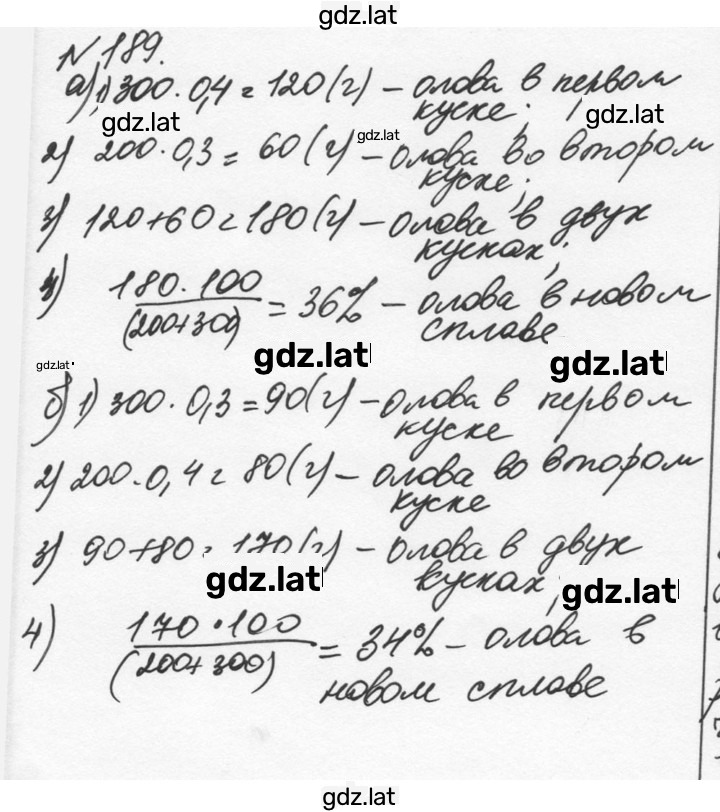 gdz.lat
N 189.
а) 1) 300 · 0,4 = 120 (г) – олова в первом
куске;
gdz.lat
gdz.lat
2) 200 · 0,3 = 60 (г) – олова во втором
gdz.lat
куске;
3) 120 + 60 = 180 (г) – олова в двух
кусках;
4) 180 · 100 / (200+300) = 36% – олова в новом
сплаве
gdz.lat
gdz.lat
gdz.lat
б) 1) 300 · 0,3 = 90 (г) – олова в первом
куске
2) 200 · 0,4 = 80 (г) – олова во втором
куске
3) 90 + 80 = 170 (г) – олова в двух
кусках;
gdz.lat
gdz.lat
4) 170 · 100 / (200+300) = 34% – олова в
новом сплаве
gdz.lat